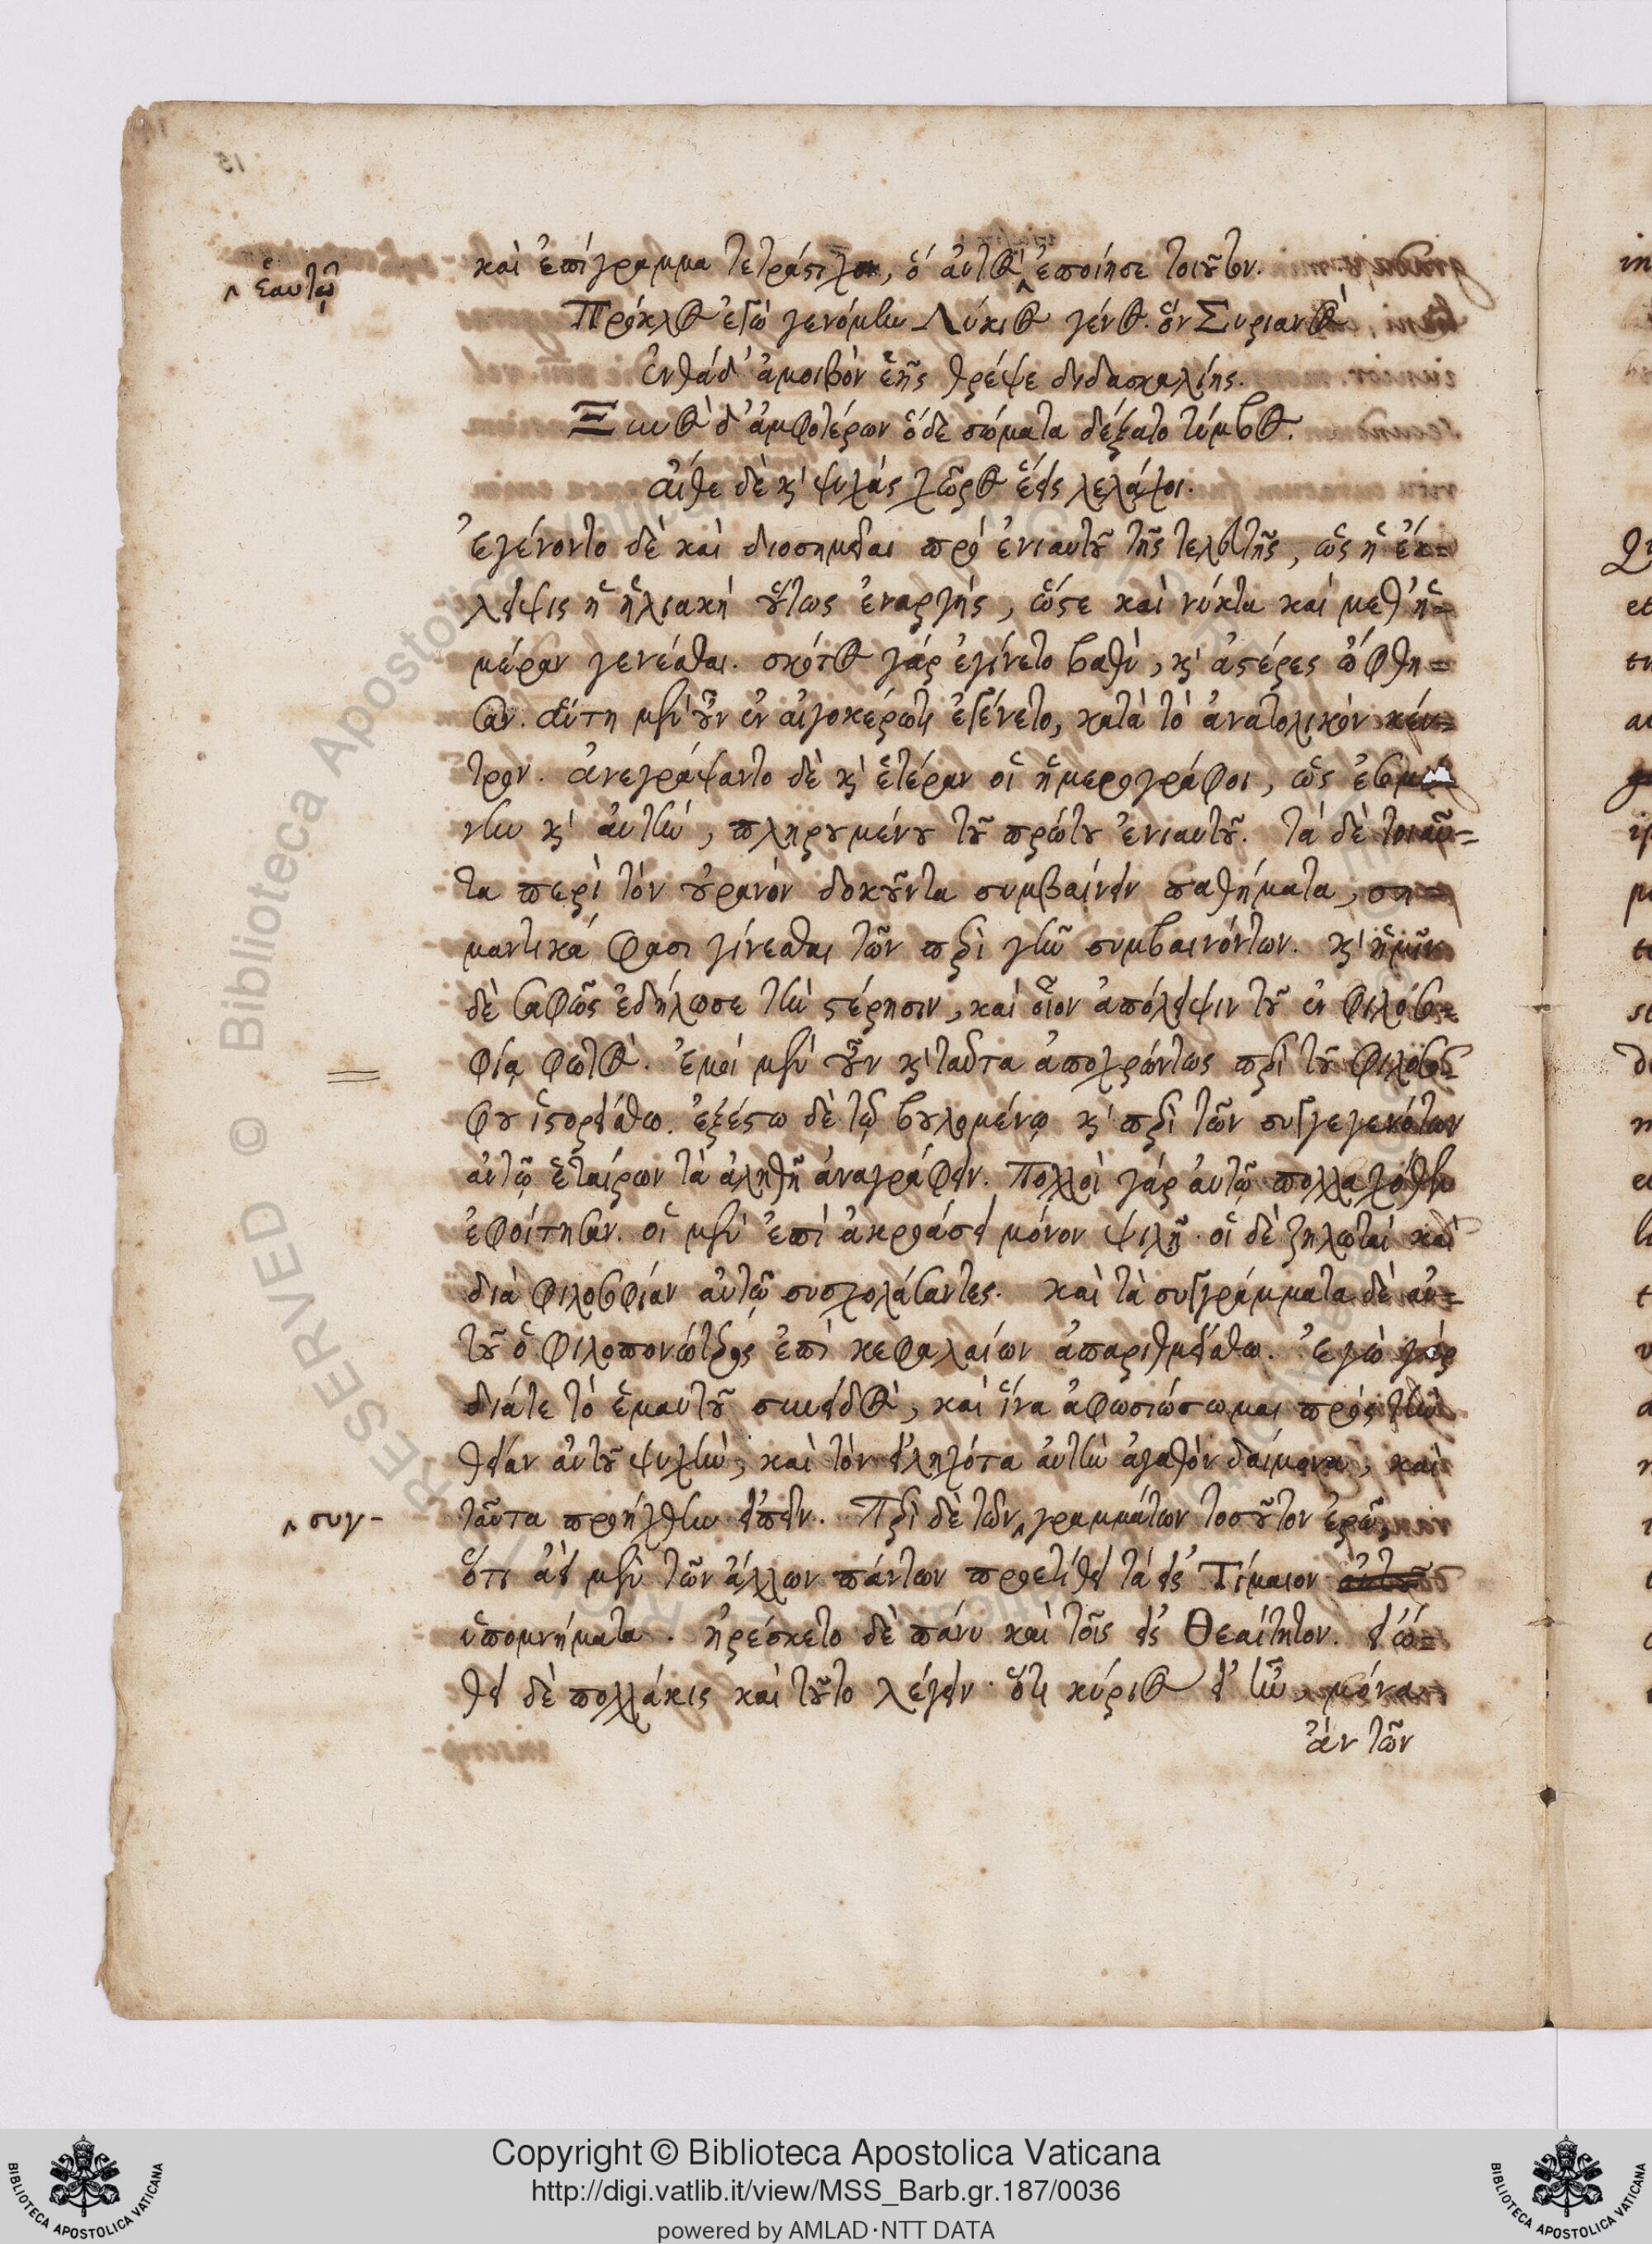 15
καὶ ἐπίγραμμα τετράστιχον, ὃ αὐτὸς ‸ ἐποίησε τοιοῦτον.
‸ ἑαυτῷ
Πρόκλος ἐγὼ γενόμην Λύκιος γένος. ὃν Συριανὸς
ἐνθάδ' ἀμοιβὸν ἑῆς θρέψε διδασκαλίης.
Ξυνὸς δ' ἀμφοτέρων ὅδε σώματα δέξατο τύμβος.
αἴθε δὲ κ̀ ψυχὰς χῶρος ἕεις λελάχοι.
Ἐγένοντο δὲ καὶ διοσημεῖαι πρὸ ἐνιαυτοῦ τῆς τελευτῆς, ὡς ἡ ἔκ=
λειψις ἡ ἡλιακὴ οὕτως ἐναργὴς, ὥστε καὶ νύκτα καὶ μεθ' ἡ=
μέραν γενέσθαι. σκότος γὰρ ἐγίνετο βαθὺ, κ̀ ἀστέρες ὤφθη=
σαν. αὕτη μὲν οὖν ἐν αἰγοκέρωτι ἐγένετο, κατὰ τὸ ἀνατολικὸν κέν=
τρον. ἀνεγράψαντο δὲ κ̀ ἑτέραν οἱ ἡμερογράφοι, ὡς ἐσομέ
νην κ̀ αὐτὴν, πληρουμένου τοῦ πρώτου ἐνιαυτοῦ. τὰ δὲ τοιαῦ=
τα περὶ τὸν οὐρανὸν δοκοῦντα συμβαίνειν παθήματα, ση=
μαντικά φασι γίνεσθαι τῶν περὶ γῆν συμβαινόντων. κ̀ ἡμῖν
δὲ σαφῶς ἐδήλωσε τὴν στέρησιν, καὶ οἷον ἀπόλειψιν τοῦ ἐν φιλοσο=
φίᾳ φωτὸς. Ἐμοὶ μὲν οὖν κ̀ ταῦτα ἀποχρώντως περὶ τοῦ φιλοσό=
φου ἱστορείσθω. ἐξέστω δὲ τῷ βουλομένῳ κ̀ περὶ τῶν συγγεγενότων
αὐτῷ ἑταίρων τὰ ἀληθῆ ἀναγράφειν. Πολλοὶ γὰρ αὐτῷ πολλαχόθεν
ἐφοίτησαν. οἱ μὲν ἐπὶ ἀκροάσει μόνον ψιλῇ. οἱ δὲ ζηλωταὶ καὶ
διὰ φιλοσοφίαν αὐτῷ συσχολάσαντες. καὶ τὰ συγγράμματα δὲ αὐ=
τοῦ ὁ φιλοπονώτερος ἐπὶ κεφαλαίων ἀπαριθμείσθω. Ἐγὼ γὰρ
διάτε τὸ ἐμαυτοῦ συνειδὸς, καὶ ἵνα ἀφωσιώσωμαι πρὸς τὴν
θείαν αὐτοῦ ψυχὴν, καὶ τὸν εἰληχότα αὐτὴν ἀγαθὸν δαίμονα, καὶ
ταῦτα προήχθην εἰπεῖν. Περὶ δὲ τῶν ‸ γραμμάτων τοσοῦτον ἐρῶ,
‸ συγ-
ὅτι ἀεὶ μὲν τῶν ἄλλων πάντων προετίθει τὰ εἰς Τίμαιον αὐτοῦ
ὑπομνήματα. ἠρέσκετο δὲ πάνυ καὶ τοῖς εἰς Θεαίτητον. εἰώ=
θει δὲ πολλάκις καὶ τοῦτο λέγειν· ὅτι κύριος εἰ ἦν, μόνα
ἂν τῶν
RESERVED © Biblioteca Apostolica Vaticana
Copyright © Biblioteca Apostolica Vaticana
http://digi.vatlib.it/view/MSS_Barb.gr.187/0036
powered by AMLAD·NTT DATA
BIBLIOTECA APOSTOLICA VATICANA
BIBLIOTECA APOSTOLICA VATICANA